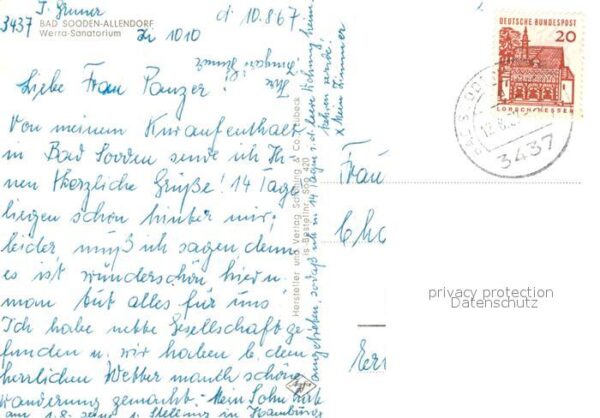 J. Gruner
3437 BAD SOODEN-ALLENDORF
Werra-Sanatorium
Zi 1010
d. 10.8.67
Liebe Frau Panzer!
Von meinem Kuraufenthalt
in Bad Sooden sende ich Ih-
nen herzliche Grüße! 14 Tage
liegen schon hinter mir,
leider, muß ich sagen, denn
es ist wunderschön hier u.
man tut alles für uns.
Ich habe nette Gesellschaft ge-
funden u. wir haben b. dem
herrlichen Wetter manch schöne
Wanderung gemacht. Mein Sohn hat
am 1.8. seine Stellung in Hamburg
angetreten, sodaß ich in 14 Tagen i. d. leere Wohnung heim-
kehren werde!
x Mein Zimmer
Ihre
Hersteller und Verlag Schöning & Co · Lübeck
Bestellnr. Soo 420
DEUTSCHE BUNDESPOST
20
LORSCH/HESSEN
3437
Frau
Err
privacy protection
Datenschutz